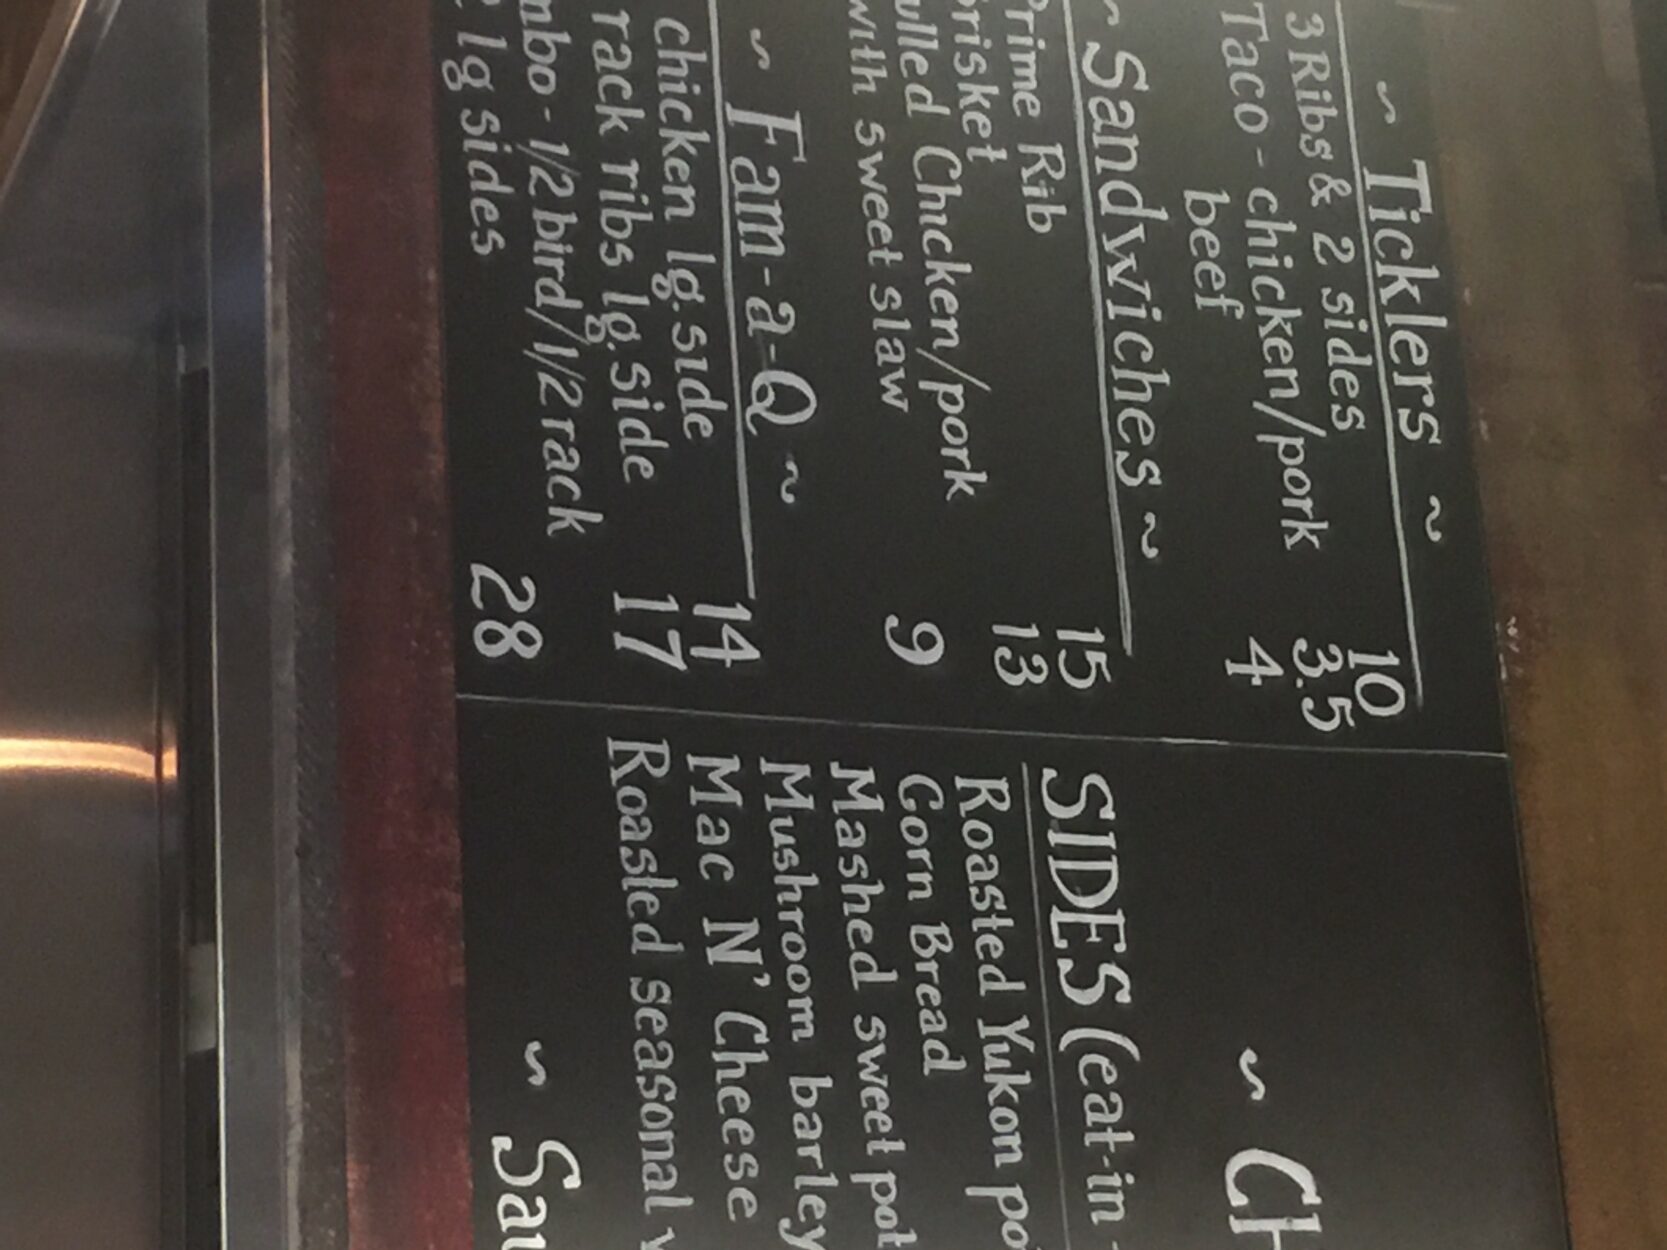 ~ Ticklers ~
3 Ribs & 2 sides 10
Taco - chicken/pork 3.5
beef 4
~ Sandwiches ~
Prime Rib 15
Brisket 13
Pulled Chicken/pork
with sweet slaw 9
~ Fam-a-Q ~
chicken lg. side 14
rack ribs lg. side 17
mbo - 1/2 bird/1/2 rack
lg sides 28
~ CH
SIDES (eat-in -
Roasted Yukon po
Corn Bread
Mashed sweet pot
Mushroom barley
Mac N' Cheese
Roasted seasonal v
~ Sau